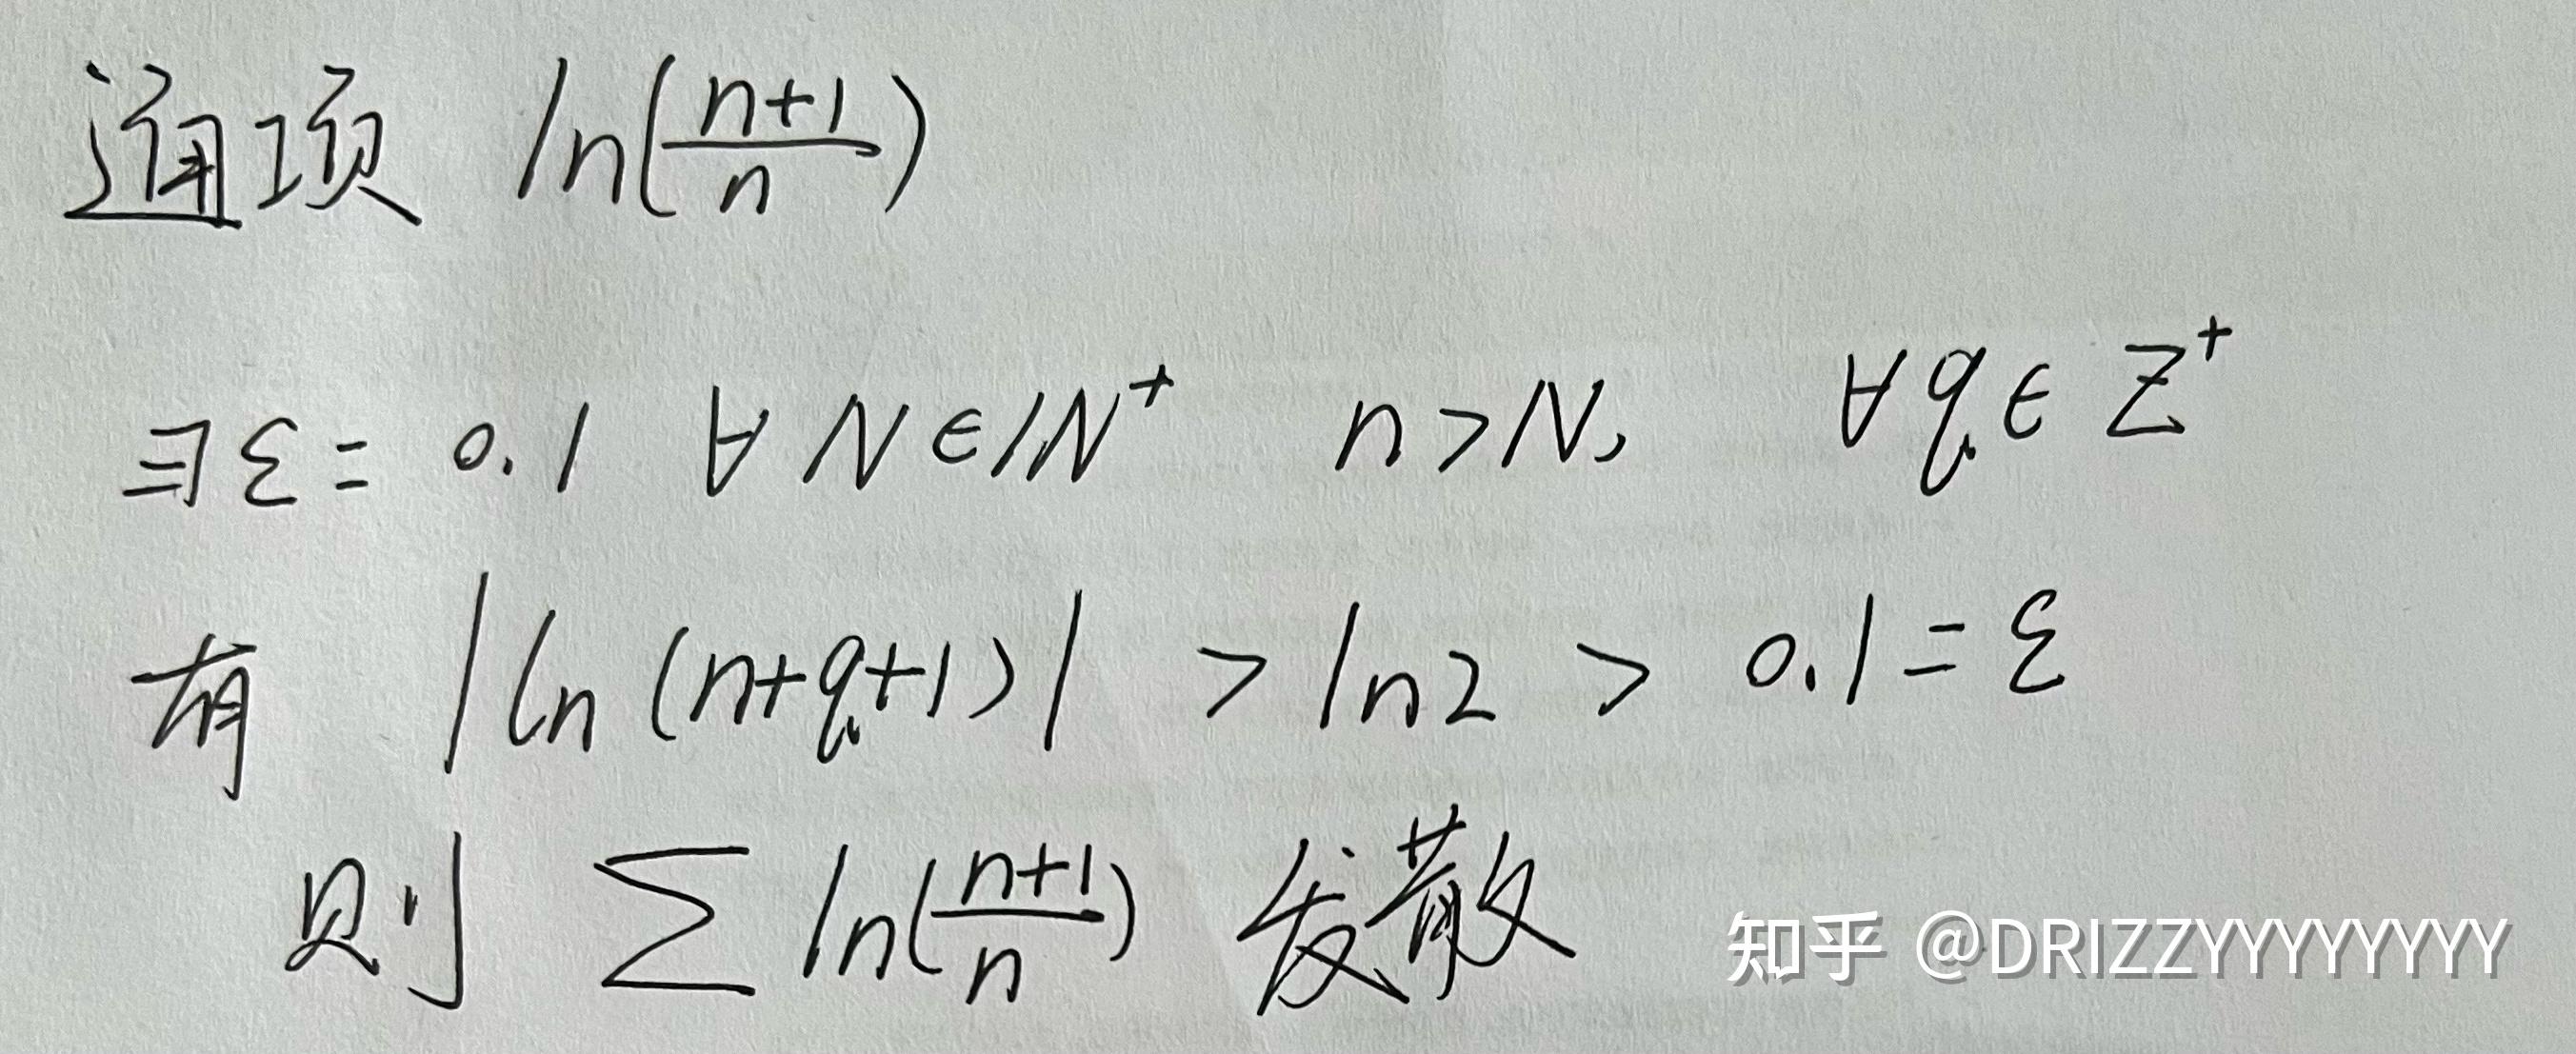 通项 ln(\frac{n+1}{n})
∃ε=0.1 ∀N∈ℕ⁺ n>N, ∀q∈Z⁺
有 |ln(n+q+1)| > ln2 > 0.1=ε
则 ∑ ln(\frac{n+1}{n}) 发散
知乎 @DRIZZYYYYYYYY